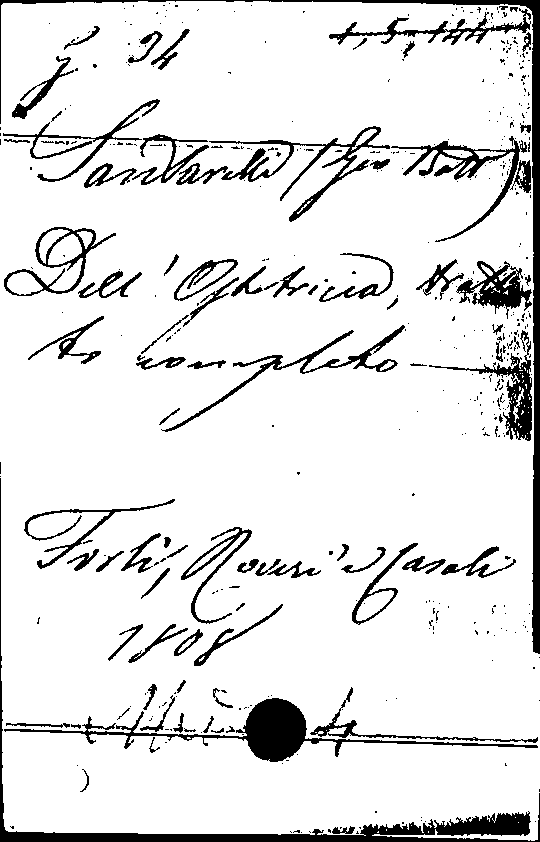 g. 34 1, 5, 144
Santarelli (Gio Batt)
Dell' Ostetricia, tratta
to completo
Forlì, Roveri e Casali
1808